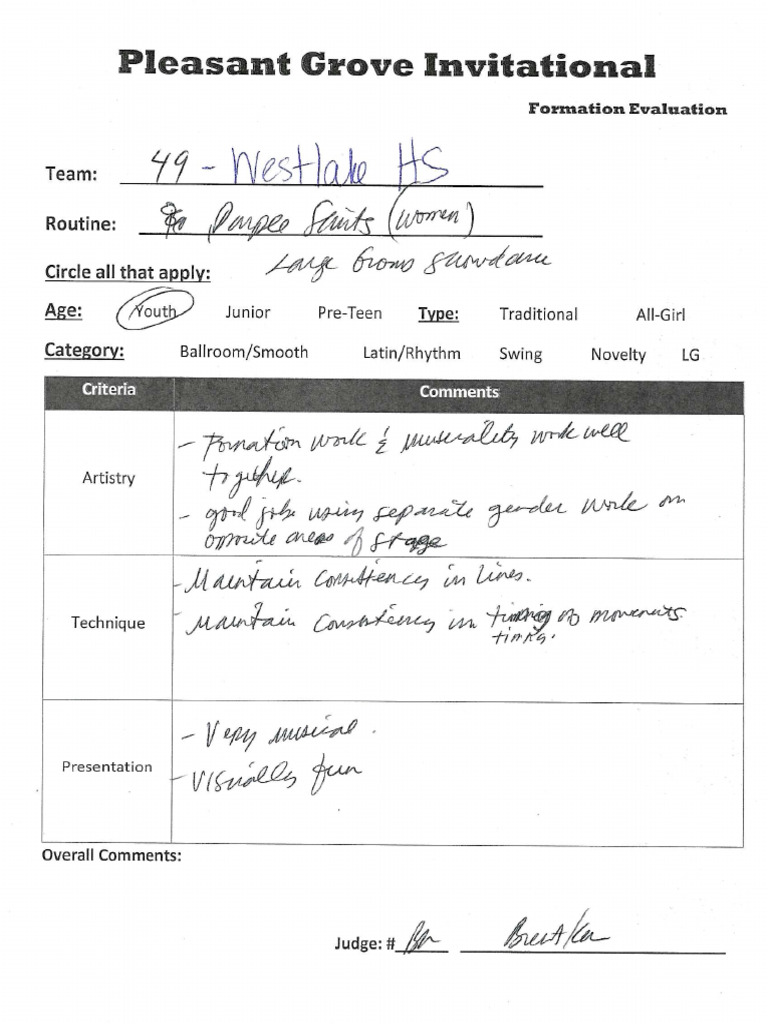 Pleasant Grove Invitational
Formation Evaluation
Team: 49 - Westlake HS
Routine: (women)
Large Showdance
Circle all that apply:
Age: Youth Junior Pre-Teen Type: Traditional All-Girl
Category: Ballroom/Smooth Latin/Rhythm Swing Novelty LG
Criteria Comments
Artistry
- Formation work & musicality work well
together.
- good job using separate gender work on
opposite areas of stage
Technique
- Maintain consistency in lines.
- Maintain consistency in timing of movements.
timing.
Presentation
- Very musical.
- Visually fun
Overall Comments:
Judge: #